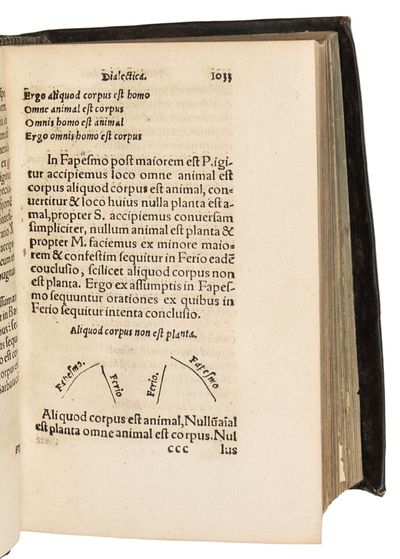 Dialectica. 1033
Ergo aliquod corpus est homo
Omne animal est corpus
Omnis homo est animal
Ergo omnis homo est corpus
In Fapesmo post maiorem est P. igi
tur accipiemus loco omne animal est
corpus aliquod corpus est animal, con-
uertitur & loco huius nulla planta est a-
mal, propter S. accipimus conuersam
simpliciter, nullum animal est planta &
propter M. faciemus ex minore maio-
rem & confestim sequitur in Ferio eadē
couclusio, scilicet aliquod corpus non
est planta. Ergo ex assumptis in Fapes-
mo sequuntur orationes ex quibus in
Ferio sequitur intenta conclusio.
Aliquod corpus non est planta.
Fapesmo. Ferio Ferio. Fapesmo
Aliquod corpus est animal, Nullū aīal
est planta omne animal est corpus. Nul
ccc lus